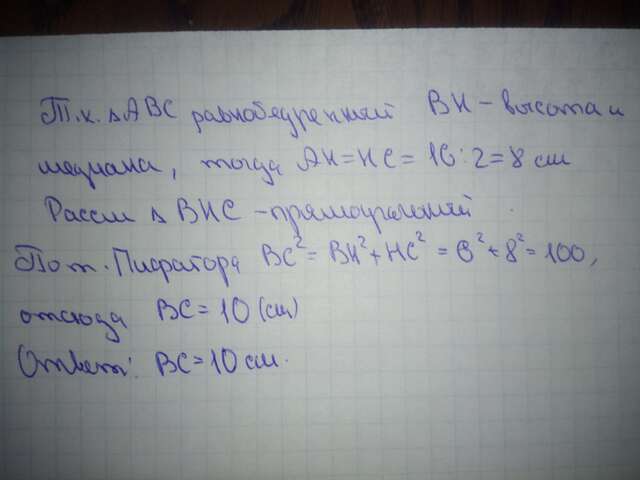 Т.к. ΔABC равнобедренный BH - высота и
медиана, тогда AH=HC=16:2=8 см
Рассм Δ BHC - прямоугольный
По т. Пифагора BC²=BH²+HC²=6²+8²=100,
отсюда BC=10 (см)
Ответ: BC=10 см.